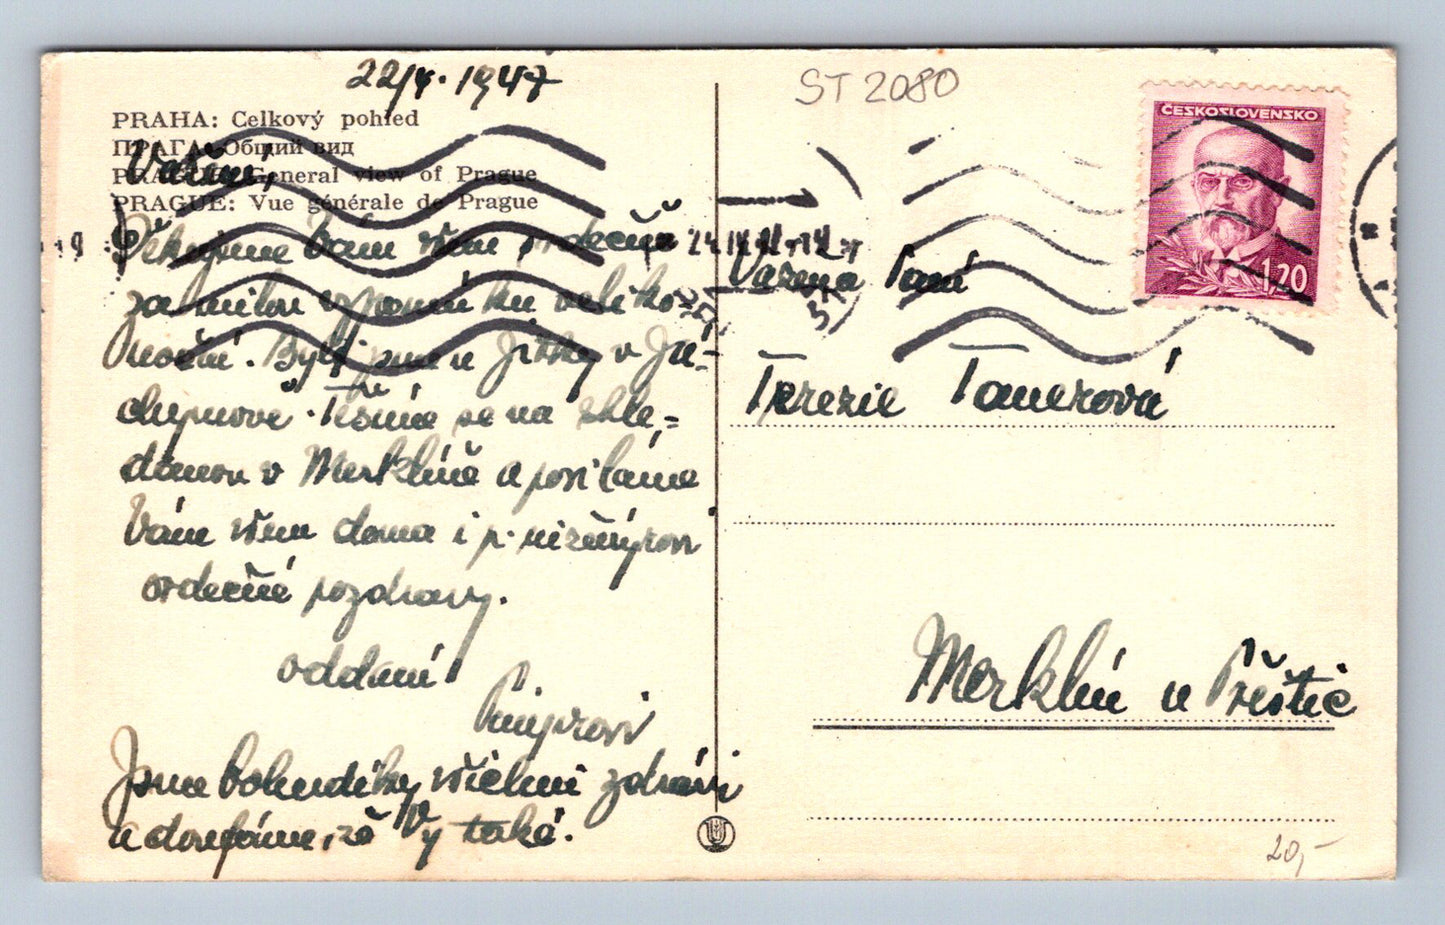 22/4. 1947
PRAHA: Celkový pohled
ПРАГА: Общий вид
PRAGUE: General view of Prague
PRAGUE: Vue générale de Prague
Vážení,
Děkujeme Vám všem srdečně
za milou vzpomínku veliko-
noční. Byli jsme u Jitky v Já-
chymově. Těšíme se na shle-
danou v Merklíně a posíláme
Vám všem doma i p.
srdečné pozdravy.
oddaní
Jsme bohudíky všichni zdrávi
a doufáme, že Vy také.
ST 2080
ČESKOSLOVENSKO
1,20
Vážená Paní
Terezie Tanerová
Merklín u Přeštic
20,-